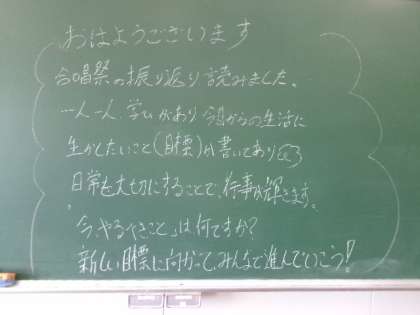 おはようございます
合唱祭の振り返り読みました。
一人一人、学びがあり今日からの生活に
生かしたいこと(目標)が書いてあり
日常を大切にすることで、行事が輝きます。
「今、やるべきこと」は何ですか?
新しい目標に向かってみんなで進んでいこう!